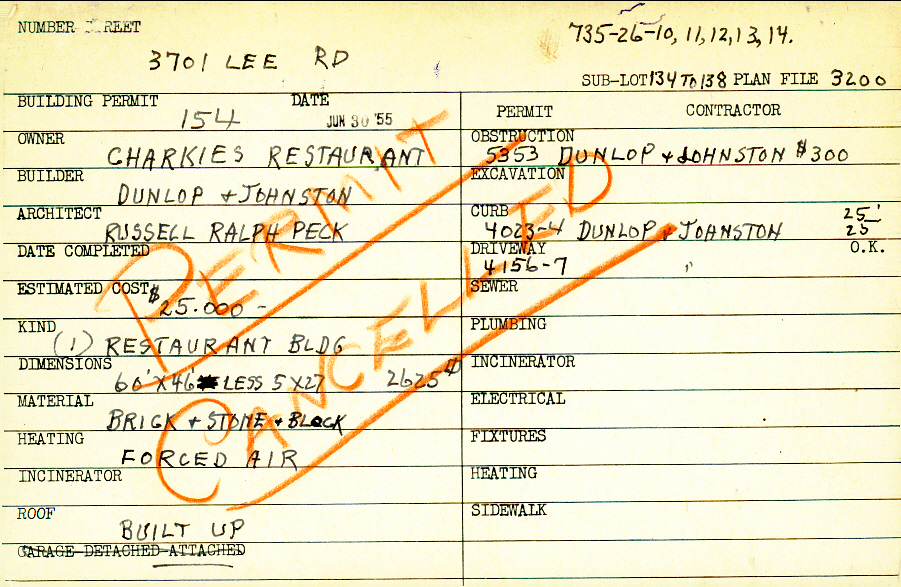 NUMBER STREET
735-26-10, 11, 12, 13, 14.
3701 LEE RD
SUB-LOT 134 TO 138 PLAN FILE 3200
BUILDING PERMIT 154 DATE JUN 30 '55
OWNER CHARKIES RESTAURANT
BUILDER DUNLOP + JOHNSTON
ARCHITECT RUSSELL RALPH PECK
DATE COMPLETED
ESTIMATED COST $25.000 -
KIND (1) RESTAURANT BLDG
DIMENSIONS 60' X 46' LESS 5 X 27 2625
MATERIAL BRICK + STONE + BLOCK
HEATING FORCED AIR
INCINERATOR
ROOF BUILT UP
GARAGE-DETACHED-ATTACHED
PERMIT CONTRACTOR
OBSTRUCTION 5353 DUNLOP + JOHNSTON $300
EXCAVATION
CURB 4023-4 DUNLOP + JOHNSTON 25' 25
DRIVEWAY 4156-7 " O.K.
SEWER
PLUMBING
INCINERATOR
ELECTRICAL
FIXTURES
HEATING
SIDEWALK
PERMIT
CANCELLED